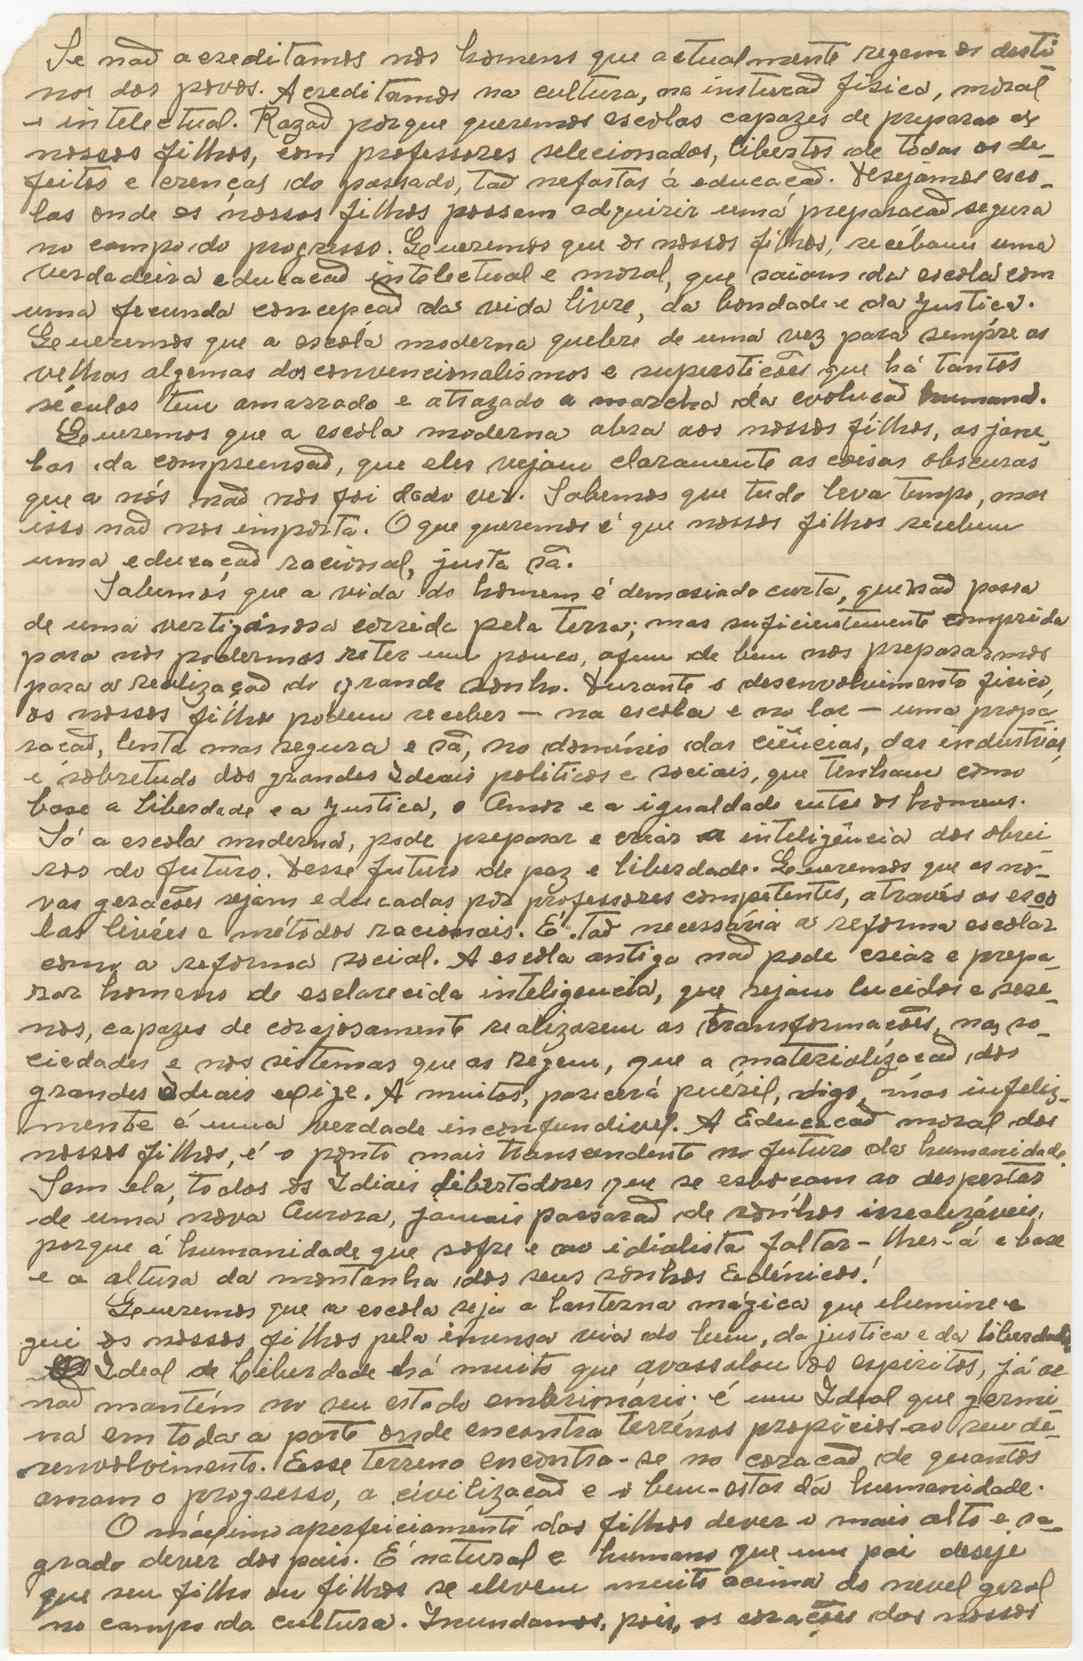 Se naõ acreditamos nos homens que actualmente regem os desti-
nos dos povos. Acreditamos na cultura, na insturaõ fisica, moral
e intelectual. Razaõ porque queremos escolas capazes de preparar os
nossos filhos, com professores selecionados, libertos de todos os de-
feitos e crenças do passado, taõ nefastas á educaçaõ. Desejamos esco-
las onde os nossos filhos possam adquirir umá preparaçaõ segura
no campo do progresso. Queremos que os nossos filhos, recebam uma
verdadeira educacaõ intelectual e moral, que saiam da escola com
uma fecunda concepçaõ da vida livre, da bondade e da Justiça.
Queremos que a escola moderna quebre de uma vez para sempre as
velhas algemas dos convencionalismos e superstições que há tantos
séculos tem amarrado e atrazado a marcha da evoluçaõ humana.
Queremos que a escola moderna abra aos nossos filhos, as jane-
las da compreensaõ, que eles vejam claramente as coisas obscuras
que a nós naõ nos foi dado ver. Sabemos que tudo leva tempo, mas
isso naõ nos importa. O que queremos é que nossos filhos recebem
uma educaçaõ racional, justa sã.
Sabemos que a vida do homem é demasiado curta, que naõ passa
de uma vertiginosa corrida pela terra; mas suficientemente comprida
para nos podermos reter um pouco, afim de bem nos prepararmos
para a realizaçaõ do grande sonho. Durante o desenvolvimento fisico,
os nossos filhos podem receber — na escola e no lar — uma prepa-
raçaõ, lenta mas segura e sã, no domínio das ciências, das industrias,
e sobretudo dos grandes Ideais politicos e sociais, que tenham como
base a liberdade e a Justica, o Amor e a igualdade entre os homens.
Só a escola moderna, pode preparar e criar a inteligência dos obrei-
ros do futuro. Desse futuro de paz e liberdade. Queremos que as no-
vas gerações sejam educadas por professores competentes, através as esco
las livres e métodos racionais. É taõ necessária a reforma escolar
como a reforma social. A escola antiga naõ pode criar e prepa-
rar homens de esclarecida inteligencia, que sejam lucidos e sere-
nos, capazes de corajosamente realizarem as transformações, nas so-
ciedades e nos sistemas que as regem, que a materializaçaõ dos
grandes Ideais exige. A muitos, parecerá pueril, digo, mas infeliz-
mente é uma verdade inconfundivel. A Educaçaõ moral dos
nossos filhos, é o ponto mais transcendente no futuro da humanidade.
Sem ela, todos os Idiais libertadores que se esbocam ao despertar
de uma nova Aurora, jamais passaraõ de sonhos irrealizáveis,
porque á humanidade que sofre e ao idialista faltar-lhes-á a base
e a altura da montanha dos seus sonhos Edénicos!
Queremos que a escola seja a lanterna mágica que elumine e
gui os nossos filhos pela imensa via do bem, da justica e da liberdade
Ideal de Liberdade há muito que avassalou os espiritos, já se
naõ mantém no seu estado embrionário; é um Ideal que germi-
na em toda a parte onde encontra terrenos propicios ao seu de-
senvolvimento. Esse terreno encontra-se no coraçaõ de quantos
amam o progresso, a civilizacaõ e o bem-estar da humanidade.
O máximo aperfeiciamento dos filhos dever o mais alto e sa-
grado dever dos pais. É natural e humano que um pai deseje
que seu filho ou filhos se elevem muito ácima do nevel geral
no campo da cultura. Inundamos, pois, os corações dos nossos